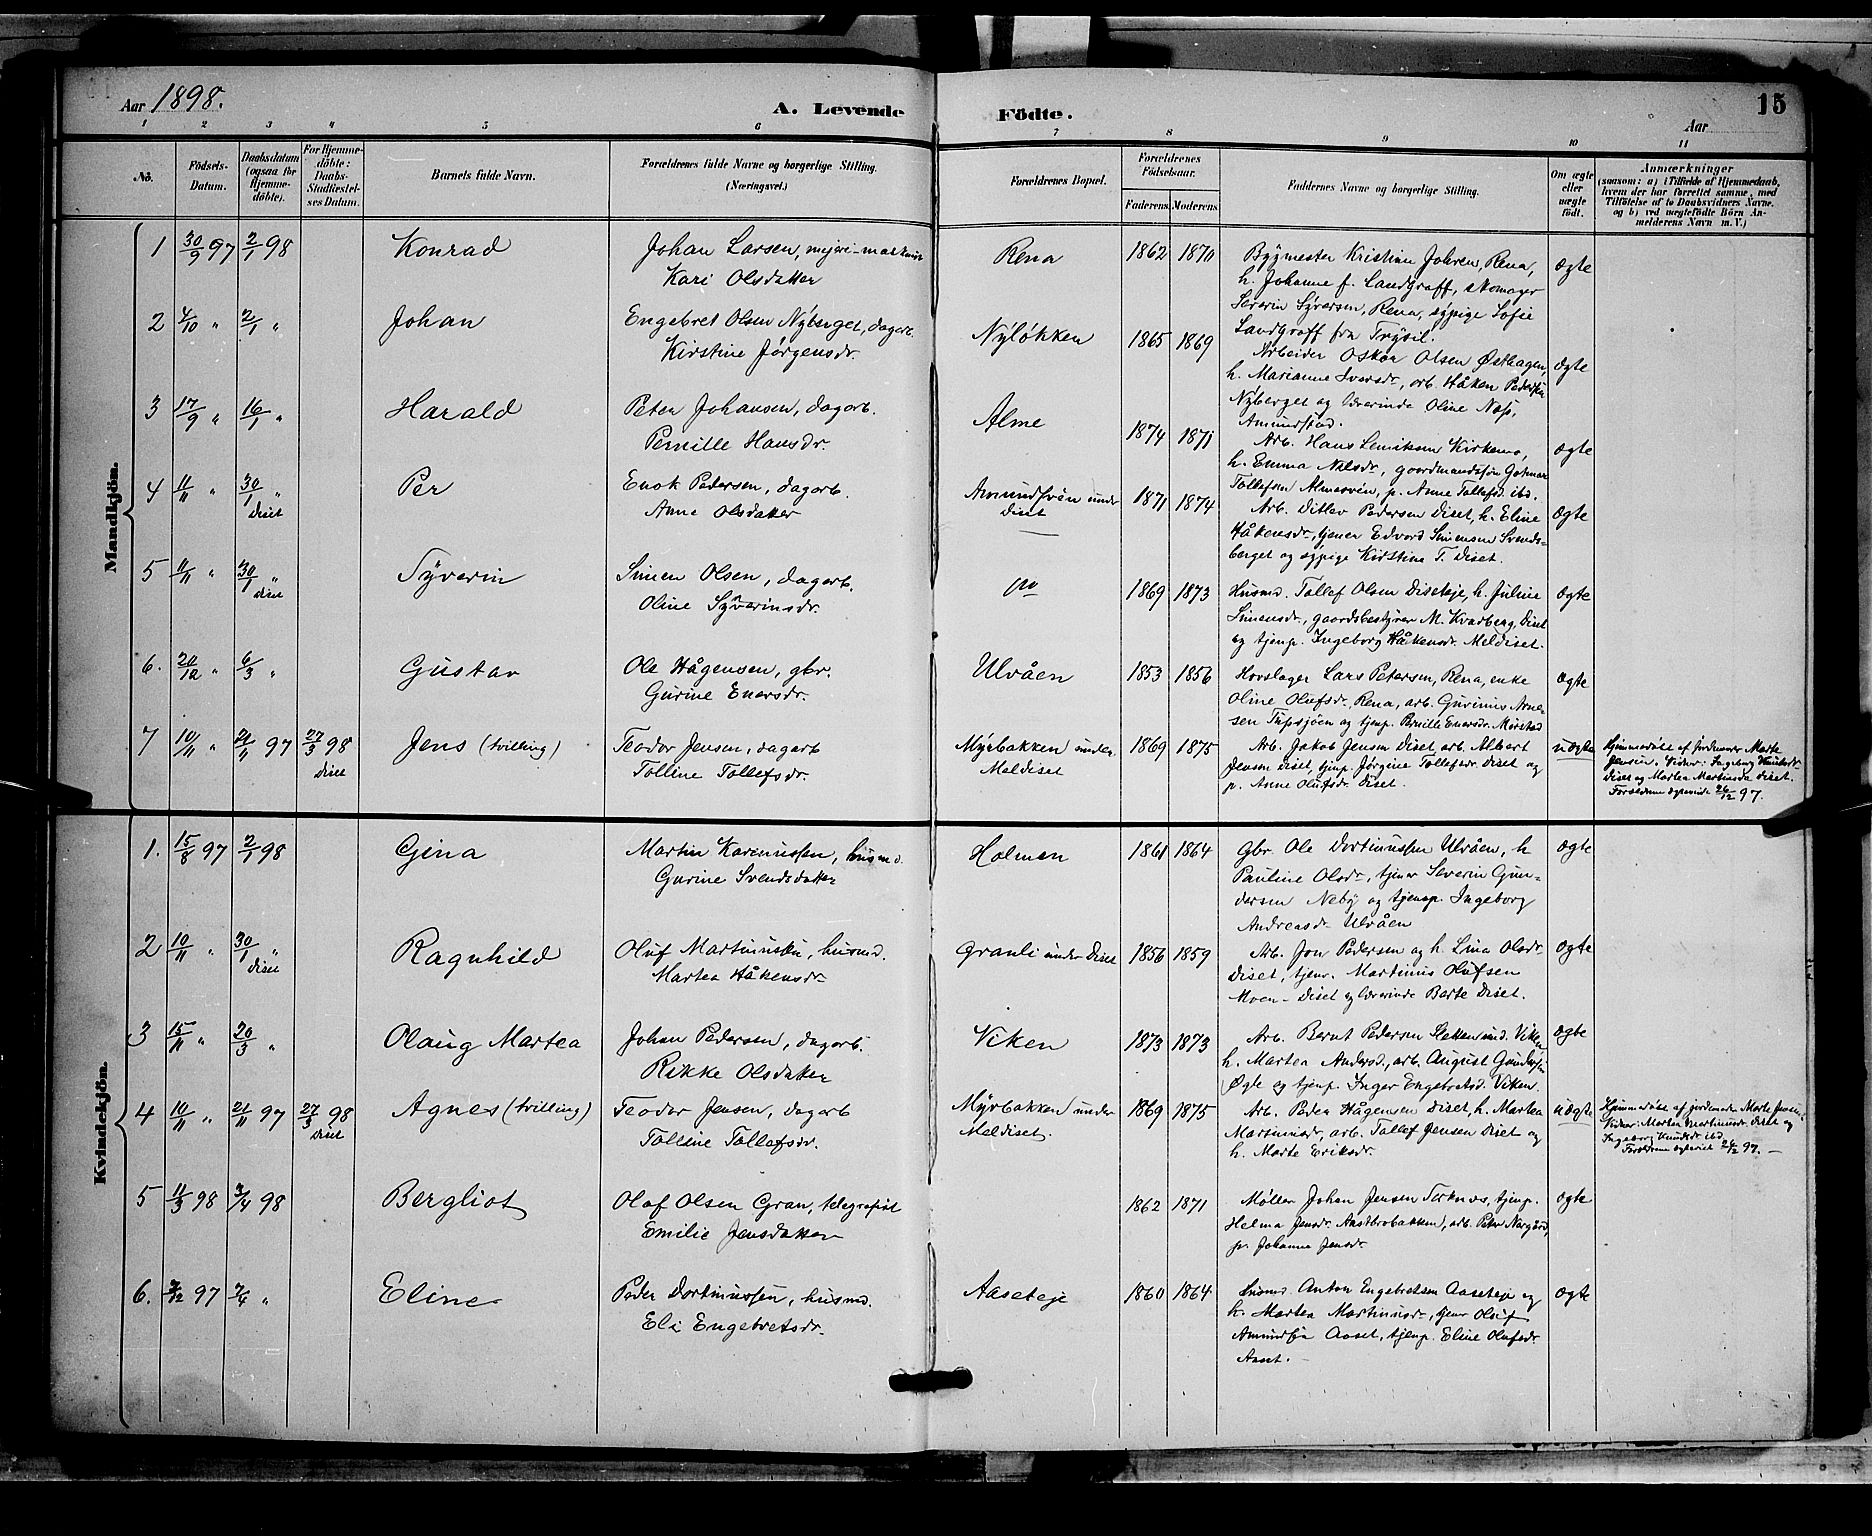 Aar 1898.
A. Levende Födte.
15
Aar
1 2 3 4 5 6 7 8 9 10 11
No.
Födsels-Datum.
Daabsdatum (ogsaa for Hjemmedöbte).
For Hjemmedöbte: Daabs-Stadfæstelses Datum.
Barnets fulde Navn.
Forældrenes fulde Navne og borgerlige Stilling. (Næringsvei.)
Forældrenes Bopæl.
Forældrenes Födselsaar.
Faderens. Moderens.
Faddernes Navne og borgerlige Stilling.
Om ægte eller uægte födt.
Anmærkninger
(saasom: a) i Tilfælde af Hjemmedaab, hvem der har forrettet samme, med Tilföielse af to Daabsvidners Navne, og b) ved uægtefödte Börn Anmelderens Navn m. V.)
Mandkjön.
1 30/9 97 2/1 98 Konrad
Johan Larsen, mejeri-maskinist
Kari Olsdatter
Rena 1862 1870
Bygmester Kristian Johren, Rena,
h. Johanne f. Landgraff, skomager
Severin Syversen, Rena, og pige Sofie
Landgraff fra Trysil.
ægte
2 4/10 " 2/1 " Johan
Engebret Olsen Nyberget, dagarb.
Kirstine Jørgensdr.
Nyløkken 1865 1869
Arbeider Oskar Olsen Østhagen,
h. Marianne Iversdr, arb. Håken Pedersen
Nyberget og lærerinde Oline Næs,
Amundstad.
ægte
3 17/9 " 16/1 " Harald
Peter Johansen, dagarb.
Pernille Hansdr.
Alme 1874 1871
Arb. Hans Lemiksen Kirkemo,
h. Emma Nilsdr, gaardmandssøn Gotmar
Tollefsen Almesvén, p. Anne Tollefsd. ibd.
ægte
4 11/11 " 30/1 " Diset Per
Enok Pedersen, dagarb.
Anne Olsdatter
Amundsvén under Diset 1871 1874
Arb. Ditlev Pedersen Diset, h. Eline
Håkensdr, tjener Edvard Simensen Svends-
berget og pige Kirstine T. Diset.
ægte
5 11/11 " 30/1 " Diset Syverin
Simen Olsen, dagarb.
Oline Syverinsdr.
do 1869 1873
Husmd. Tollef Olsen Diseteje, h. Juline
Simensdr, gaardsbestyrer M. Kvadberg, Diset
og tjenp. Ingeborg Håkensdr Meldiset.
ægte
6. 20/12 " 6/3 " Gustav
Ole Hågensen, gbr.
Gurine Enersdr.
Ulvåen 1853 1856
Hovslager Lars Petersen, Rena, enke
Oline Olufsdr, Rena, arb. Gurinius Arne-
sen Tapsjöen og tjenp. Bernille Enersdr. Mørstad
ægte
7 10/11 " 21/11 97 27/3 98 Diset Jens (tvilling)
Teodor Jensen, dagarb
Tolline Tollefsdr.
Myrbakken under Meldiset 1869 1875
Arb. Jakob Jensen Diset, arb. Albert
Jensen Diset, tjenp. Jørgine Tollefsdr. Diset og
p. Anne Olufsdr. Diset.
uægte
Hjemmedøbt af jordmoder Marte
Jensen. Vidner: Ingeborg Knutsdr
Diset og Martea Martinsda Diset.
Forældrene ægteviede 26/12 97.
Kvindekjön.
1. 15/8 97 2/1 98 Gina
Martin Kareniussen, husmd.
Gurine Svendsdatter
Holmen 1861 1864
Gbr. Ole Dortinussen Ulvåen, h
Pauline Olsdr, tjener Severin Gun-
dersen Neby og tjenp. Ingeborg
Andreasdr Ulvåen
ægte
2 10/11 " 30/1 " Diset Ragnhild
Oluf Martinussen, husmd.
Martea Håkensdr
Granli under Diset 1856 1859
Arb. Jon Pedersen og h. Lina Olsdr
Diset, tjenr. Martinus Olufsen
Moen-Diset og lærerinde Berte Diset.
ægte
3 15/11 " 20/3 " Olaug Martea
Johan Pedersen, dagarb.
Rikke Olsdatter
Viken 1873 1873
Arb. Bernt Pedersen Slettenund. Viken
h. Martea Andersd., arb. August Gundersen
Øgle og tjenp. Inger Engebretsd. Viken.
ægte
4 10/11 " 21/11 97 27/3 98 Diset Agnes (tvilling)
Teodor Jensen, dagarb
Tolline Tollefsdr.
Myrbakken under Meldiset. 1869 1875
Arb. Peder Hågensen Diset, h. Martea
Martinusdr, arb. Tollef Jensen Diset og
h. Marte Eriksdr.
uægte
Hjemmedøbt af jordmoder Marte Jensen.
Vidner: Martea Martinusdr. Diset og
Ingeborg Knudsdr ibd
Forældrene ægteviet 26/12 97.
5 11/3 98 3/4 98 Bergliot
Olaf Olsen Gran, telegrafist
Emilie Jensdatter
1862 1871
Møller Johan Jensen Terknæs, tjenp.
Helma Jensdr. Aastbrobakken, arb. Peter Norgård,
p. Johanne Jensdr.
ægte
6. 3/12 97 3/4 " Eline
Peder Dortinussen, husmd.
Eli Engebretsdr.
Aaseteje 1860 1864
Husmd Anton Engebretsen Aaseteje og
h. Martea Martinusdr, tjener Oluf
Amundsen Aaset, tjenp. Eline Olufsdr
Aaset.
ægte